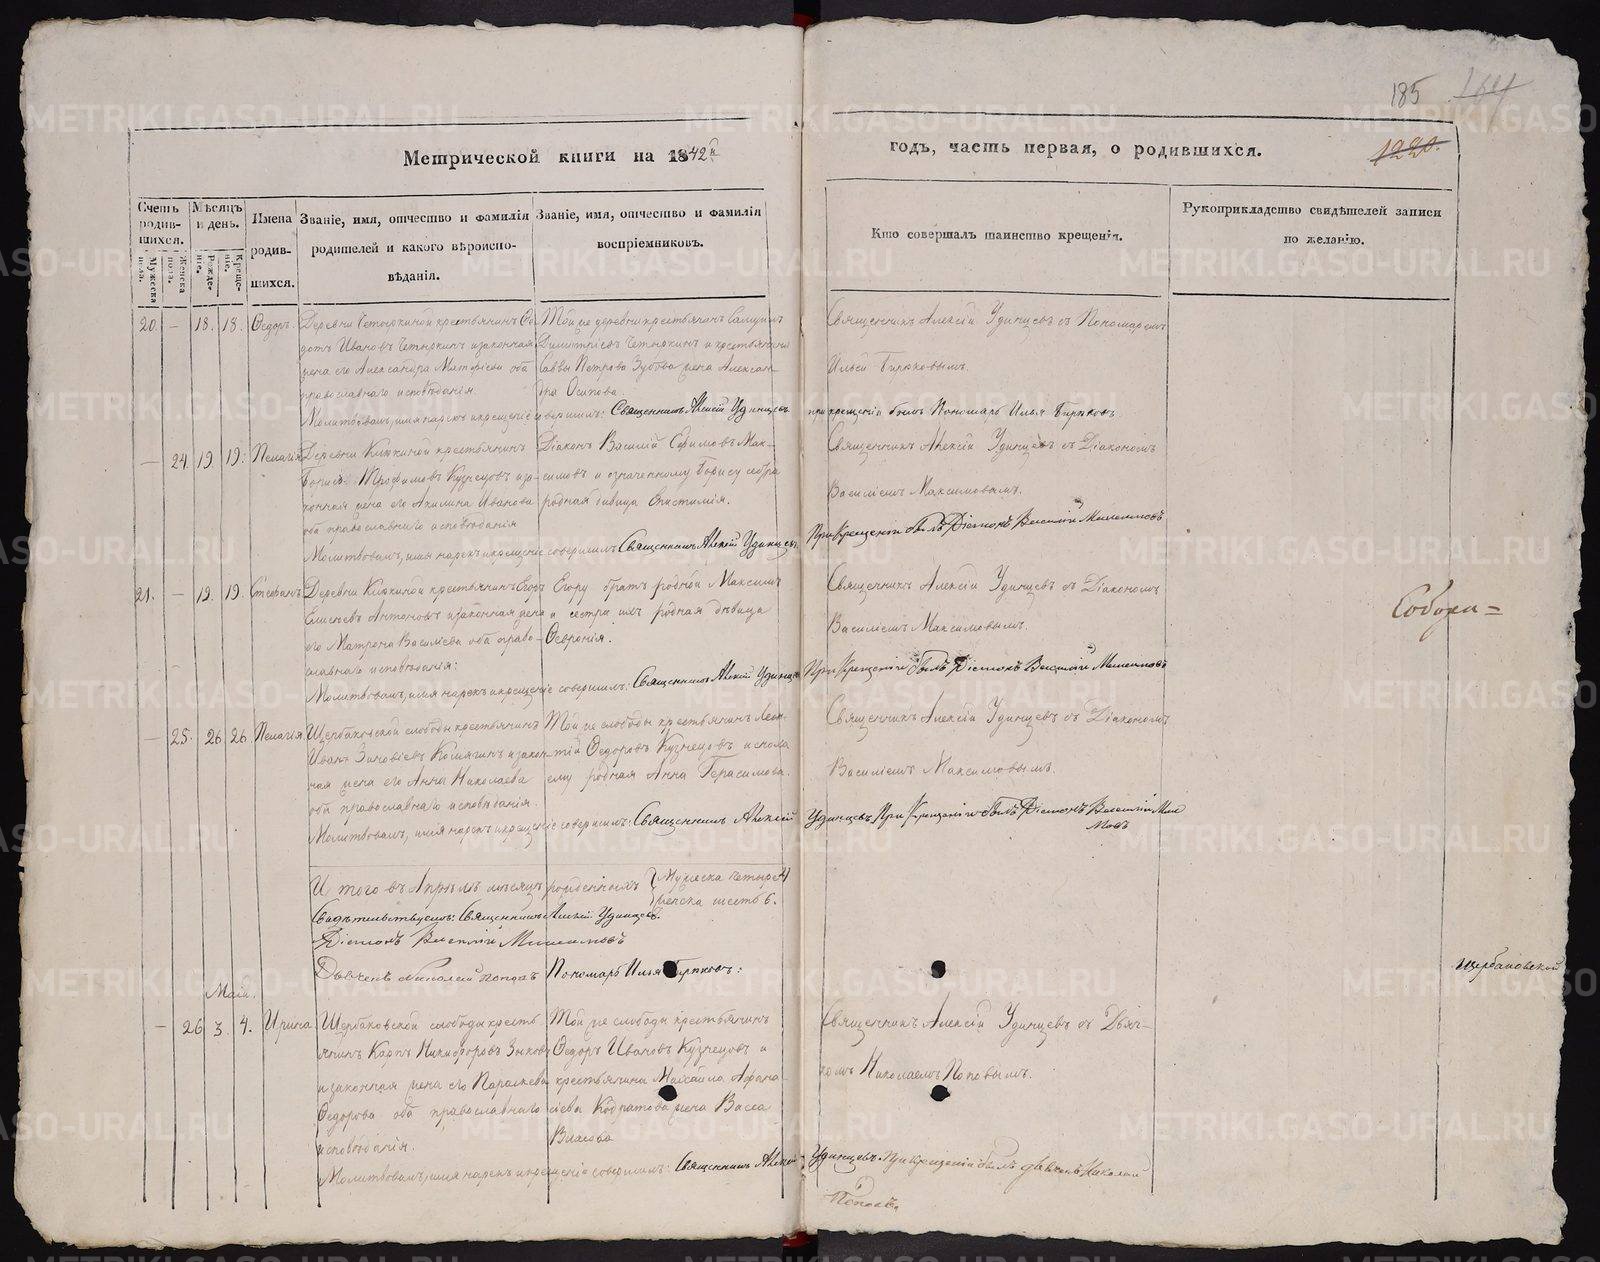 185 164
Метрической книги на 1842й годъ, часть первая, о родившихся. 1220.
Счетъ родив-шихся.
Мужеска пола.
Женска пола.
Мѣсяцъ и день.
Рожде-ніе.
Креще-ніе.
Имена родив-шихся.
Званіе, имя, отчество и фамилія
родителей и какого вѣроиспо-
вѣданія.
Званіе, имя, отчество и фамилія
воспріемниковъ.
Кто совершалъ таинство крещенія.
Рукоприкладство свидѣтелей записи
по желанію.
20. — 18. 18. Ѳедоръ.
Деревни Четыркиной крестьянинъ Ѳе-
дотъ Ивановъ Четыркинъ и законная
жена его Александра Матфіева оба
православнаго исповѣданія
Той же деревни крестьянинъ
Димитріевъ Четыркинъ и крестьянина
Саввы Петрова Зубова жена Алексан-
дра Осипова.
Священникъ Алексій Удинцевъ съ Пономаремъ
Ильей Бирюковымъ.
Молитвовалъ, имя нарекъ и крещеніе совершилъ: Священникъ Алексій Удинцевъ. при крещеніи былъ Пономарь Илья Бирюковъ
— 24. 19. 19. Пелагия
Деревни крестьянинъ
Борисъ Трофимовъ Кузнецовъ и за-
конная жена его Акилина Иванова
оба православнаго исповѣданія
Діаконъ Василій Ефимовъ Мак-
симовъ и означенному Борису сестра
родная дѣвица Епистимія.
Священникъ Алексій Удинцевъ съ Діакономъ
Василіемъ Максимовымъ.
Молитвовалъ, имя нарекъ и крещеніе совершилъ Священникъ Алексій Удинцевъ. При крещеніи былъ Діаконъ Василій Максимовъ
21. — 19. 19. Стефанъ.
Деревни крестьянинъ Егоръ
Елисеевъ Антоновъ и законная жена
его Матрона Василіева оба право-
славнаго исповѣданія:
Егору братъ родной Максимъ
и сестра ихъ родная дѣвица
Ѳевронія.
Священникъ Алексій Удинцевъ съ Діакономъ
Василіемъ Максимовымъ.
Молитвовалъ, имя нарекъ и крещеніе совершилъ: Священникъ Алексій Удинцевъ При крещеніи былъ Діаконъ Василій Максимовъ
— 25. 26 26. Пелагія.
Щербаковской слободы крестьянинъ
Иванъ Зиновіевъ и закон-
ная жена его Анна Николаева
оба православнаго исповѣданія.
Той же слободы крестьянинъ Леон-
тій Ѳедоровъ Кузнецовъ и
ему родная Анна Герасимова.
Священникъ Алексій Удинцевъ съ Діакономъ
Василіемъ Максимовымъ.
Молитвовалъ, имя нарекъ и крещеніе совершилъ: Священникъ Алексій Удинцевъ, При крещеніи былъ Діаконъ Василій Макси
мовъ
И того въ Апрѣлѣ мѣсяцѣ рожденныхъ Мужеска четыре 4
женска шесть 6.
Свидѣтельствуемъ: Священникъ Алексій Удинцевъ.
Діаконъ Василій Максимовъ
Дьячекъ Николай Поповъ Пономарь Илья Бирюковъ:
Май.
— 26 3. 4. Ирина
Щербаковской слободы кресть-
янинъ Карпъ Никифоровъ Зыковъ
и законная жена его Параскева
Ѳедорова оба православнаго
исповѣданія.
Той же слободы крестьянинъ
Ѳедоръ Ивановъ Кузнецовъ и
крестьянина Михаила Афана-
сіева жена Васса
Власова
Священникъ Алексій Удинцевъ съ Дьяч-
комъ Николаемъ Поповымъ.
Молитвовалъ, имя нарекъ и крещеніе совершилъ: Священникъ Алексій Удинцевъ. При крещеніи былъ дьячекъ Николай
Поповъ.
Собори=
Щербаковской
METRIKI.GASO-URAL.RU